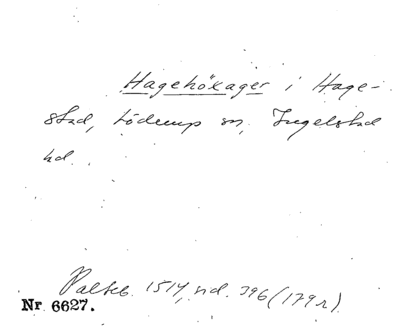 Hagehöxager i Hage-
stad, Löderup sn, Ingelstad
hd.
Palteb. 1514, sid. 396 (179 r)
Nr 6627.